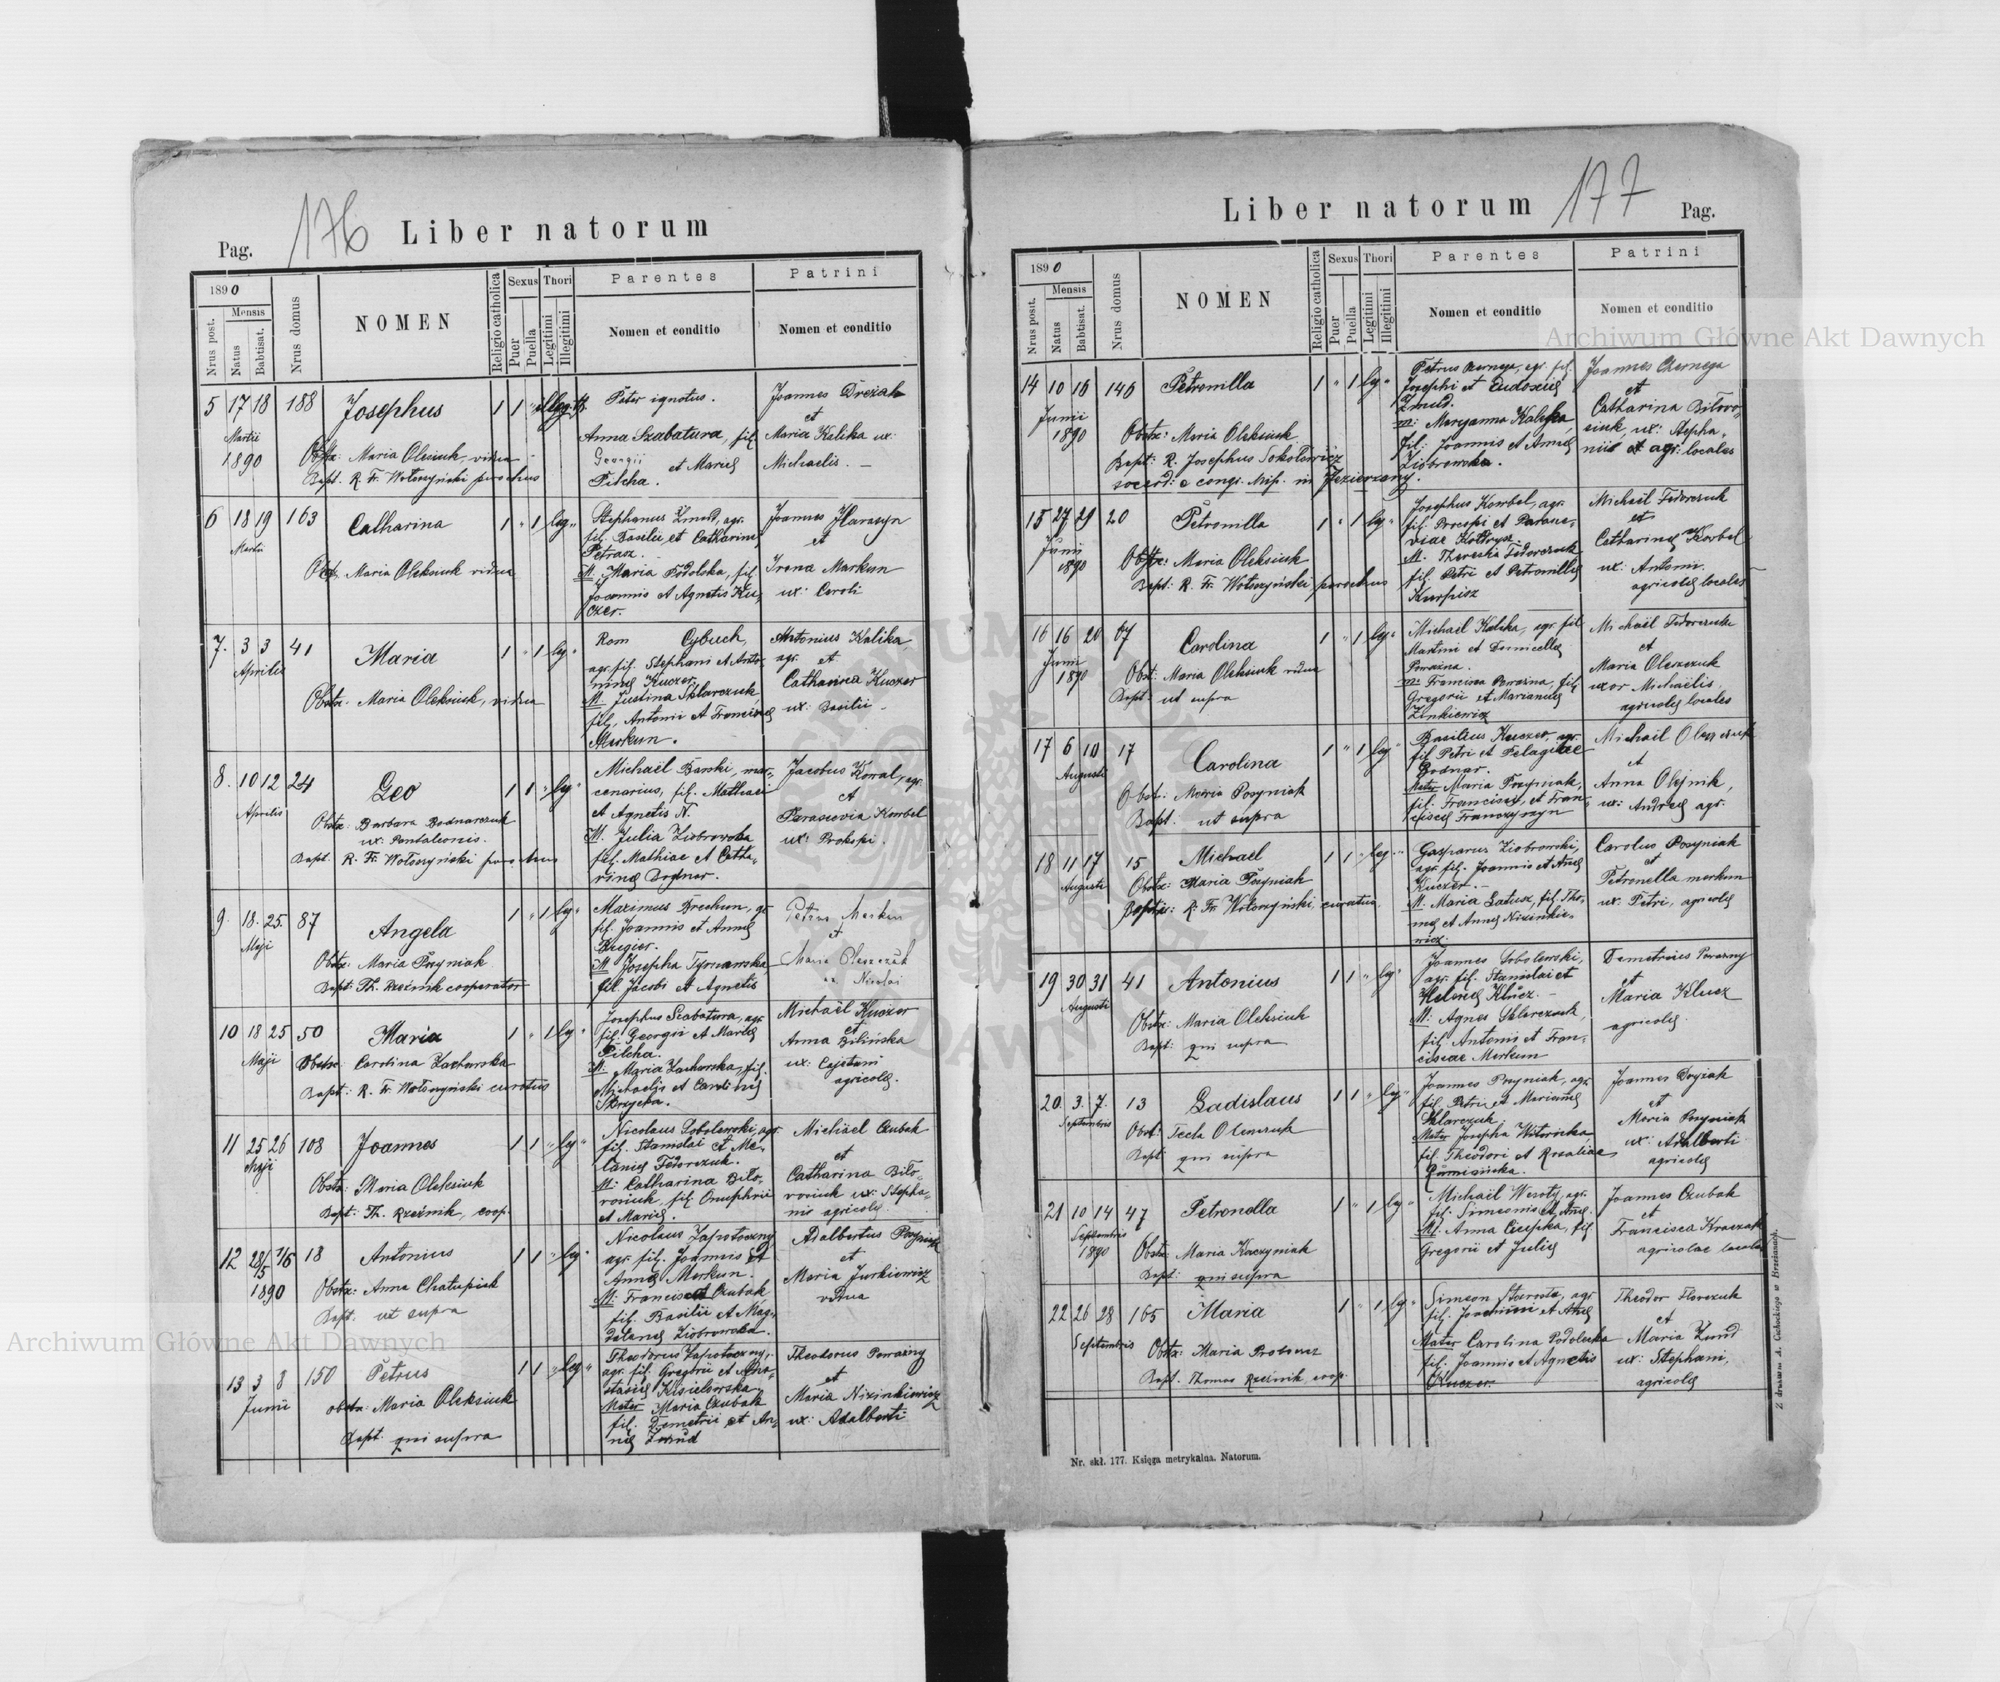 176
Pag.
Liber natorum
1890
Nrus post.
Mensis
Natus
Babtisat.
Nrus domus
NOMEN
Religio catholica
Sexus
Puer
Puella
Thori
Legitimi
Illegitimi
Parentes
Nomen et conditio
Patrini
Nomen et conditio
5 17 18 188 Josephus 1 1 "
Martii
1890
Obstx: Maria Oleksiuk, vidua
Bapt. R. Fr. Wołoszyński parochus
Pater ignotus.
Anna Szabatura, fil.
Georgii et Mariæ
Pilcha.
Joannes Dreżak
et
Maria Kalika ux:
Michaelis. —
6 18 19 163 Catharina 1 " 1 leg "
Martii
Obst: Maria Oleksiuk vidua
Stephanus Żmud, agr.
fil. Basilii et Catharinæ
Petrasz.
M: Maria Podolska, fil
Joannis et Agnetis Ku-
czer.
Joannes Harasyn
et
Irena Markun
ux: Caroli
7. 3 3 41 Maria 1 " 1 leg "
Aprilis
Obstx. Maria Oleksiuk, vidua
Rom Cybuch,
agr. fil. Stephani et Anto-
ninæ Kuczer.
M: Justina Sklarczuk
fil. Antonii et Franciscæ
Merkun.
Antonius Kalika,
agr. et
Catharina Kuczer
ux: Basilii —
8. 10 12 24 Leo 1 1 " leg "
Aprilis
Obstx: Barbara Bodnarczuk
ux: Pantalionis.
Bapt. R. Fr. Wołoszyński parochus
Michaël Barski, mer-
cenarius, fil. Mathaei
et Agnetis N.
M. Julia Ziobrowska
fil. Mathiae et Catha-
rinæ Bodnar.
Jacobus Kowal, agr.
et
Parascevia Korbel
ux: Prokopi.
9. 18. 25. 87 Angela 1 " 1 leg "
Maji
Obstx: Maria Posyniak
Bapt: Th. Rzeźnik cooperator
Maximus Brechun, agr
fil. Joannis et Annæ
Krugier.
M. Josepha Tyrnawska
fil Jacobi et Agnetis
Petrus Merkun
et
Maria Oleszczuk
ux. Nicolai
10 18 25 50 Maria 1 " 1 leg "
Maji
Obstx: Carolina Zacharska
Bapt: R. Fr. Wołoszyński curatus
Josephus Szabatura, agr.
fil. Georgii et Mariæ
Pilcha.
M: Maria Zacharska, fil.
Michaelis et Carolinæ
Skrzycka.
Michaël Kuczer
et
Anna Bilińska
ux: Cajetani
agricolæ.
11 25 26 108 Joannes 1 1 " leg "
Maji
Obstx: Maria Oleksiuk
Bapt: Th. Rzeźnik, coop.
Nicolaus Sobolewski, agr.
fil. Stanislai et Me-
laniæ Fedorczuk.
M: Catharina Bilo-
rosiuk, fil. Onuphrii
et Mariæ.
Michael Czubak
et
Catharina Bilo-
rosiuk ux: Stepha-
nis agricolæ
12 28/5 1/6 18 Antonius 1 1 " leg "
1890
Obstx: Anna Chałupiak
Bapt. ut supra
Nicolaus Zapotoczny
agr. fil. Joannis et
Annæ Merkun.
M: Francisca Czubak
fil. Basilii et Mag-
dalenæ Ziobrowska.
Adalbertus Posyniak
et
Maria Jurkiewicz
vidua
13 3 8 150 Petrus 1 1 " leg "
Junii
Obstx: Maria Oleksiuk
Bapt. qui supra
Theodorus Zapotoczny,
agr. fil. Gregorii et Ana-
stasiæ Kisielewska
Mater Maria Czubak
fil. Demetrii et An-
næ Żmud
Theodorus Porażny
et
Maria Nizinkiewicz
ux: Adalberti
Liber natorum
177
Pag.
1890
Nrus posit.
Mensis
Natus
Babtisat.
Nrus domus
NOMEN
Religio catholica
Sexus
Puer
Puella
Thori
Legitimi
Illegitimi
Parentes
Nomen et conditio
Patrini
Nomen et conditio
14 10 16 146 Petronilla 1 " 1 leg "
Junii
1890
Obstx: Maria Oleksiuk
Bapt: R. Josephus Sokołowicz
sacerd: e congr. Miss. in Jezierzany.
Petrus Czernega, agr. fil.
Josephi et Eudoxiæ
Żmud.
M: Maryanna Kalika,
fil: Joannis et Annæ
Ziobrowska.
Joannes Chernega
et
Catharina Biloro-
siuk ux: Stepha-
nis et agr: locales
15 27 29 20 Petronilla 1 " 1 leg "
Junii
1890
Obstx: Maria Oleksiuk
Bapt: R. Fr. Wołoszyński parochus
Josephus Korbel, agr.
fil. Procopi et Parasce-
viae
M. Theresia Fedorczuk
fil. Petri et Petronillæ
Kurpisz
Michaël Fedorczuk
et
Catharina Korbel
ux: Antoni.
agricolæ locales
16 16 20 67 Carolina 1 " 1 leg "
Junii
1890
Obst: Maria Oleksiuk vidua
Bapt: ut supra
Michaël Kalika, agr. fil
Martini et Domicellæ
Porażna.
M: Francisca Porażna, fil,
Gregorii et Mariannæ
Zinkiewicz
Michaël Fedorczuk
et
Maria Oleszczuk
uxor Michaëlis.
agricolæ locales
17 6 10 17 Carolina 1 " 1 leg "
Augusti
Obst: Maria Posyniak
Bapt. ut supra
Basilius Kuczer, agr.
fil Petri et Pelagiae
Bodnar.
Mater Maria Posyniak,
fil. Francisci, et Fran-
ciscæ
Michaël Oleszczuk
et
Anna Olejnik,
ux: Andreæ agr.
18 11 17 15 Michael 1 1 " leg "
Augusti
Obstx: Maria Posyniak
Baptis: R. Fr. Wołoszyński, curatus.
Gasparus Ziobrowski,
agr. fil. Joannis et Annæ
Kuczer. —
M. Maria Łatusz, fil. Tho-
mæ et Annæ Nizinkie-
wicz.
Carolus Posyniak
et
Petronella Merkun
ux: Petri, agricolæ
19 30 31 41 Antonius 1 1 " leg "
Augusti
Obstx: Maria Oleksiuk
Bapt: qui supra
Joannes Sobolewski,
agr. fil. Stanislai et
Helenæ Klucz. —
M: Agnes Sklarczuk,
fil. Antonii et Fran-
ciscae Merkun
Demetrius Porażny
et
Maria Klucz
agricolæ.
20. 3. 7. 13 Ladislaus 1 1 " leg "
Septembris
Obst: Tecla Oleszczuk
Bapt qui supra
Joannes Posyniak, agr.
fil. Petri et Mariannæ
Sklarczuk
Mater Josepha Witwicka,
fil. Theodori et Rosaliae
Joannes Dreżak
et
Maria Posyniak
ux: Adalberti
agricolæ
21 10 14 47 Petronella 1 " 1 leg "
Septembris
1890
Obstx: Maria Kaczyniak
Bapt: qui supra
Michaël Wesoły, agr.
fil. Simeonis et Annæ
M: Anna Ciupka, fil,
Gregorii et Juliæ
Joannes Czubak
et
Francisca Kraczak
agricolae locales
22 26 28 165 Maria 1 " 1 leg "
Septembris
Obstx: Maria
Bapt. Thomas Rzeźnik, coop.
Simeon Starosta, agr
fil. Joachimi et Annæ
Mater Carolina Podolecka
fil: Joannis et Agnetis
Kuczer.
Theodor Florczuk
et
Maria Żmud
ux: Stephani,
agricolæ
Nr. skł. 177. Księga metrykalna. Natorum.
Archiwum Główne Akt Dawnych
Archiwum Główne Akt Dawnych